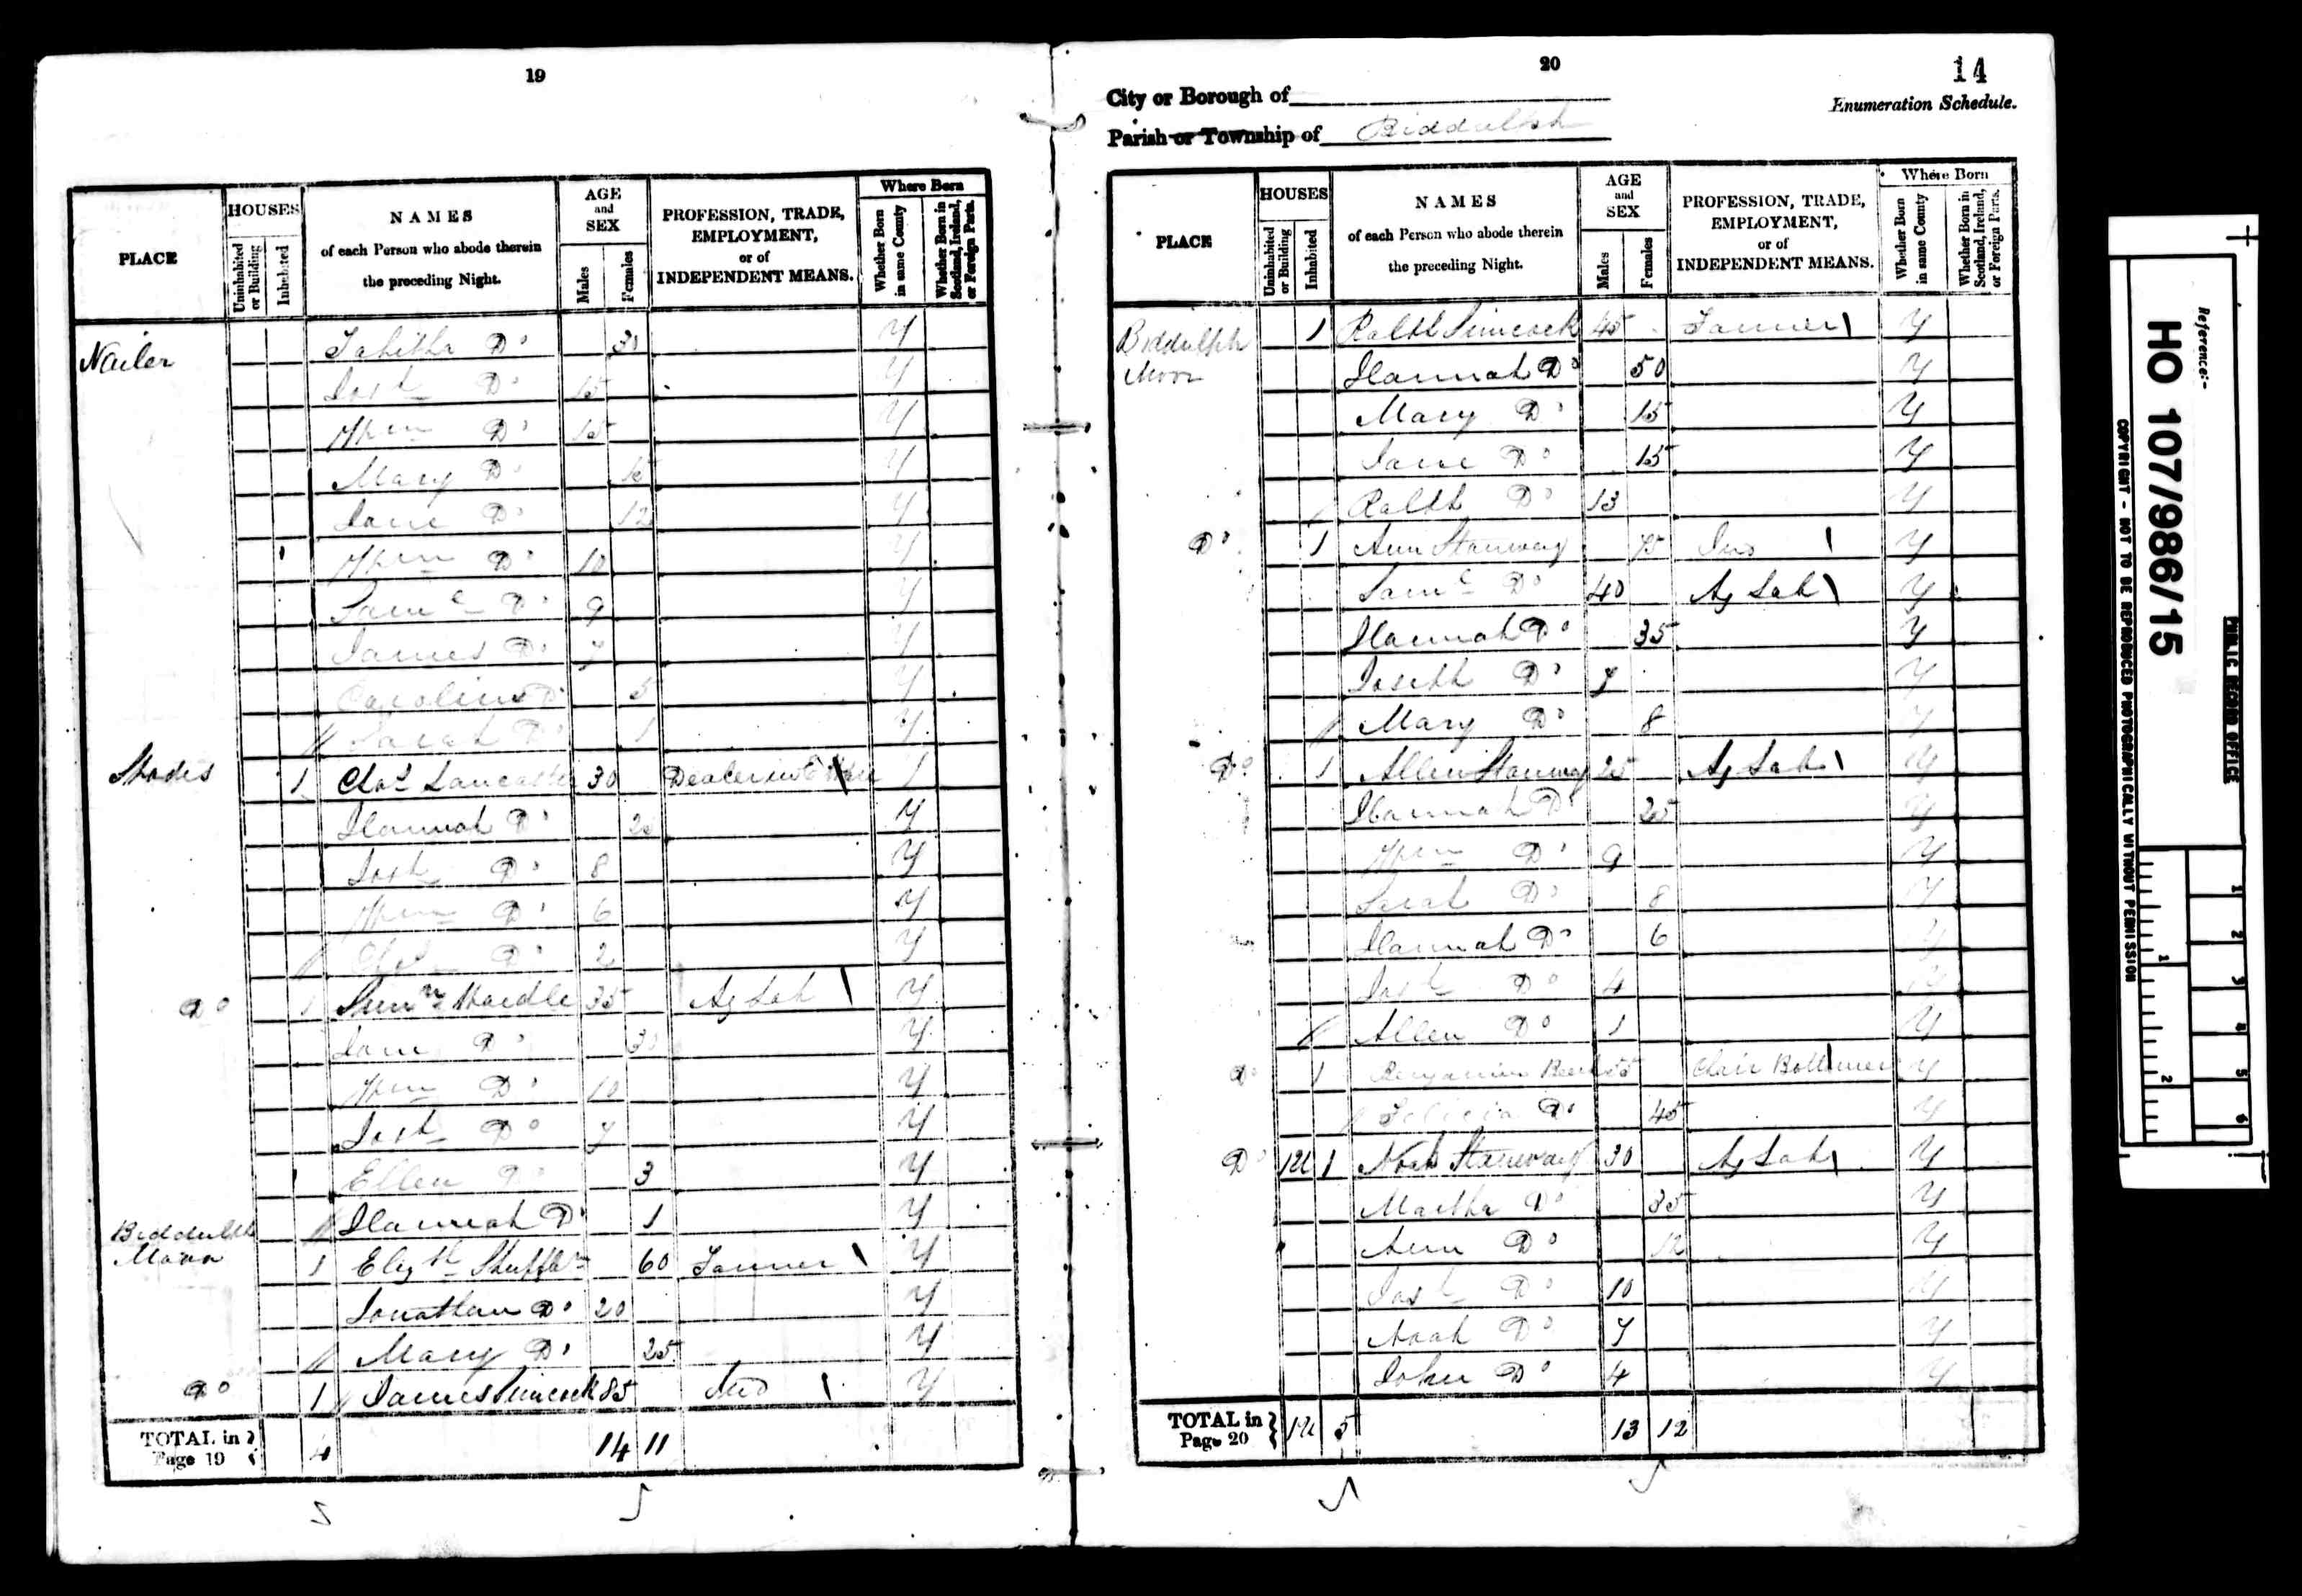 19
PLACE
HOUSES
Uninhabited or Building
Inhabited
NAMES
of each Person who abode therein
the preceding Night.
AGE
and
SEX
Males
Females
PROFESSION, TRADE,
EMPLOYMENT,
or of
INDEPENDENT MEANS.
Where Born
Whether Born in same County
Whether Born in Scotland, Ireland, or Foreign Parts.
Nailer Tabitha Do 30 Y
Josh Do 15 Y
Wm Do 15 Y
Mary Do 15 Y
Jane Do 12 Y
Wm Do 10 Y
Saml Do 9 Y
James Do 7 Y
Caroline Do 5 Y
Sarah Do 1 Y
1 Chas Lancaster 30 Dealer in
Hannah Do Y
Josh Do 8 Y
Wm Do 6 Y
Chas Do 2 Y
Do 1 35 Ag Lab Y
Jane Do 30 Y
Wm Do 10 Y
Josh Do 7 Y
Ellen Do 3 Y
Hannah Do 1 Y
Biddulph
Moor 1 Elizth 60 Farmer Y
Jonathan Do 20 Y
Mary Do 25 Y
Do 1 James Simcock 85 Ind Y
TOTAL in Page 19 4 14 11
20
14
City or Borough of
Enumeration Schedule.
Parish or Township of Biddulph
PLACE
HOUSES
Uninhabited or Building
Inhabited
NAMES
of each Person who abode therein
the preceding Night.
AGE
and
SEX
Males
Females
PROFESSION, TRADE,
EMPLOYMENT,
or of
INDEPENDENT MEANS.
Where Born
Whether Born in same County
Whether Born in Scotland, Ireland, or Foreign Parts.
Biddulph 1 Ralph Simcock 45 Farmer Y
Moor Hannah Do 50 Y
Mary Do 15 Y
Jane Do 15 Y
Ralph Do 13 Y
Do 1 Ann Stanway 75 Ind Y
Saml Do 40 Ag Lab Y
Hannah Do 35 Y
Joseph Do 7 Y
Mary Do 8 Y
Do 1 Allen Stanway 25 Ag Lab Y
Hannah Do 25 Y
Wm Do 9 Y
Sarah Do 8 Y
Hannah Do 6 Y
Josh Do 4 Y
Allen Do 1 Y
Do 1 Benjamin 55 Chair Bottomer Y
Felicia Do 45 Y
Do 1U 1 Noah Stanway 30 Ag Lab Y
Martha Do 35 Y
Ann Do 12 Y
Josh Do 10 Y
Noah Do 7 Y
John Do 4 Y
TOTAL in Page 20 1U 5 13 12
Reference:-
HO 107/986/15
PUBLIC RECORD OFFICE
COPYRIGHT - NOT TO BE REPRODUCED PHOTOGRAPHICALLY WITHOUT PERMISSION
1 2 3 4 5 6
1 2